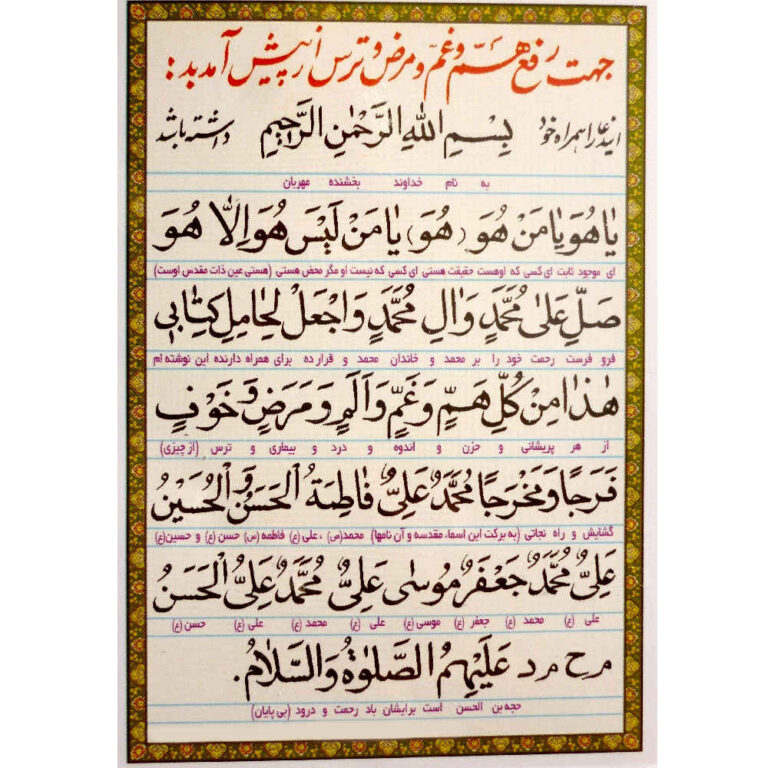 جهت رفع هَمّ و غم و مرض و ترس از پیش آمد بد:
ایندعا را همراه خود بِسْمِ اللهِ الرَّحْمٰنِ الرَّحِیمِ داشته باشد
به نام خداوند بخشنده مهربان
یٰا هُوَ یٰا مَنْ هُوَ (هُوَ) یٰا مَنْ لَیْسَ هُوَ اِلّٰا هُوَ
ای موجود ثابت ای کسی که اوهست حقیقت هستی ای کسی که نیست او مگر محض هستی (هستی عین ذات مقدس اوست)
صَلِّ عَلیٰ مُحَمَّدٍ وَاٰلِ مُحَمَّدٍ وَاجْعَلْ لِحٰامِلِ کِتٰابی
فرو فرست رحمت خود را بر محمد و خاندان محمد و قرار ده برای همراه دارنده این نوشته ام
هٰذٰا مِنْ کُلِّ هَمٍّ وَغَمٍّ وَاَلَمٍ وَمَرَضٍ وَخَوْفٍ
از هر پریشانی و حزن و اندوه و درد و بیماری و ترس (از چیزی)
فَرَجًا وَمَخْرَجًا مُحَمَّدٌ عَلِیٌّ فٰاطِمَةُ اَلْحَسَنُ وَالْحُسَیْنُ
گشایش و راه نجاتی (به برکت این اسماء مقدسه و آن نامها) محمد(ص) ، علی(ع) فاطمه(س) حسن(ع) و حسین(ع)
عَلِیٌّ مُحَمَّدٌ جَعْفَرٌ مُوسٰی عَلِیٌّ مُحَمَّدٌ عَلِیٌّ اَلْحَسَنُ
علی (ع) محمد (ع) جعفر (ع) موسی(ع) علی (ع) محمد (ع) علی (ع) حسن(ع)
م ح م د عَلَیْهِمُ الصَّلوٰةُ وَالسَّلٰامُ.
حجه بن الحسن است برایشان باد رحمت و درود (بی پایان)